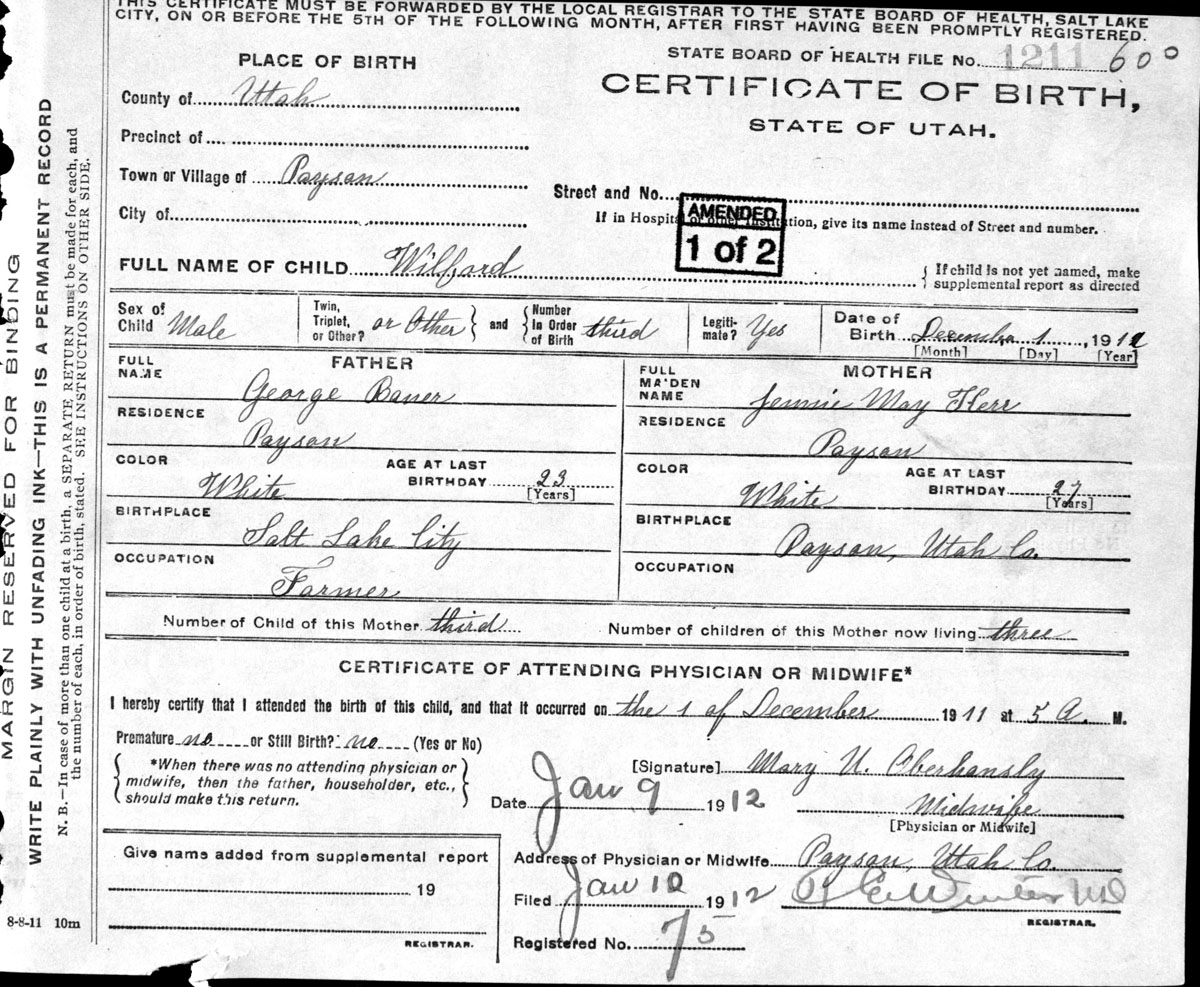 THIS CERTIFICATE MUST BE FORWARDED BY THE LOCAL REGISTRAR TO THE STATE BOARD OF HEALTH, SALT LAKE
CITY, ON OR BEFORE THE 5TH OF THE FOLLOWING MONTH, AFTER FIRST HAVING BEEN PROMPTLY REGISTERED.
STATE BOARD OF HEALTH FILE No. 1211 600
PLACE OF BIRTH
CERTIFICATE OF BIRTH,
STATE OF UTAH.
County of Utah
Precinct of
Town or Village of Payson
Street and No.
City of
If in Hospital or other Institution, give its name instead of Street and number.
AMENDED
1 of 2
FULL NAME OF CHILD Wilford
{ If child is not yet named, make
supplemental report as directed
Sex of Child Male
Twin, Triplet, or Other? or Other } and { Number In Order of Birth third
Legiti-mate? Yes
Date of Birth December 1, 1911
[Month] [Day] [Year]
FATHER
FULL NAME George Baner
RESIDENCE Payson
COLOR White
AGE AT LAST BIRTHDAY 23 [Years]
BIRTHPLACE Salt Lake City
OCCUPATION Farmer
MOTHER
FULL MAIDEN NAME Jennie May Herr
RESIDENCE Payson
COLOR White
AGE AT LAST BIRTHDAY 27 [Years]
BIRTHPLACE Payson, Utah Co.
OCCUPATION
Number of Child of this Mother third
Number of children of this Mother now living three
CERTIFICATE OF ATTENDING PHYSICIAN OR MIDWIFE*
I hereby certify that I attended the birth of this child, and that it occurred on the 1 of December 1911 at 5 A. M.
Premature no or Still Birth? no (Yes or No)
{ *When there was no attending physician or
midwife, then the father, householder, etc.,
should make this return. }
[Signature] Mary U. Oberhansly
Date Jan 9 1912
Midwife
[Physician or Midwife]
Give name added from supplemental report
19
REGISTRAR.
Address of Physician or Midwife Payson, Utah Co.
Filed Jan 10 1912
Winter MD
REGISTRAR.
Registered No. 75
MARGIN RESERVED FOR BINDING
WRITE PLAINLY WITH UNFADING INK—THIS IS A PERMANENT RECORD
N. B.—In case of more than one child at a birth, a SEPARATE RETURN must be made for each, and
the number of each, in order of birth, stated. SEE INSTRUCTIONS ON OTHER SIDE.
8-8-11 10m